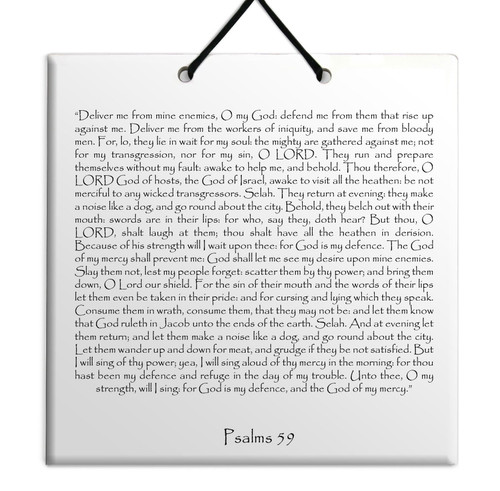 “Deliver me from mine enemies, O my God: defend me from them that rise up
against me. Deliver me from the workers of iniquity, and save me from bloody
men. For, lo, they lie in wait for my soul: the mighty are gathered against me; not
for my transgression, nor for my sin, O LORD. They run and prepare
themselves without my fault: awake to help me, and behold. Thou therefore, O
LORD God of hosts, the God of Israel, awake to visit all the heathen: be not
merciful to any wicked transgressors. Selah. They return at evening: they make
a noise like a dog, and go round about the city. Behold, they belch out with their
mouth: swords are in their lips: for who, say they, doth hear? But thou, O
LORD, shalt laugh at them; thou shalt have all the heathen in derision.
Because of his strength will I wait upon thee: for God is my defence. The God
of my mercy shall prevent me: God shall let me see my desire upon mine enemies.
Slay them not, lest my people forget: scatter them by thy power; and bring them
down, O Lord our shield. For the sin of their mouth and the words of their lips
let them even be taken in their pride: and for cursing and lying which they speak.
Consume them in wrath, consume them, that they may not be: and let them know
that God ruleth in Jacob unto the ends of the earth. Selah. And at evening let
them return; and let them make a noise like a dog, and go round about the city.
Let them wander up and down for meat, and grudge if they be not satisfied. But
I will sing of thy power; yea, I will sing aloud of thy mercy in the morning: for thou
hast been my defence and refuge in the day of my trouble. Unto thee, O my
strength, will I sing: for God is my defence, and the God of my mercy.”
Psalms 59